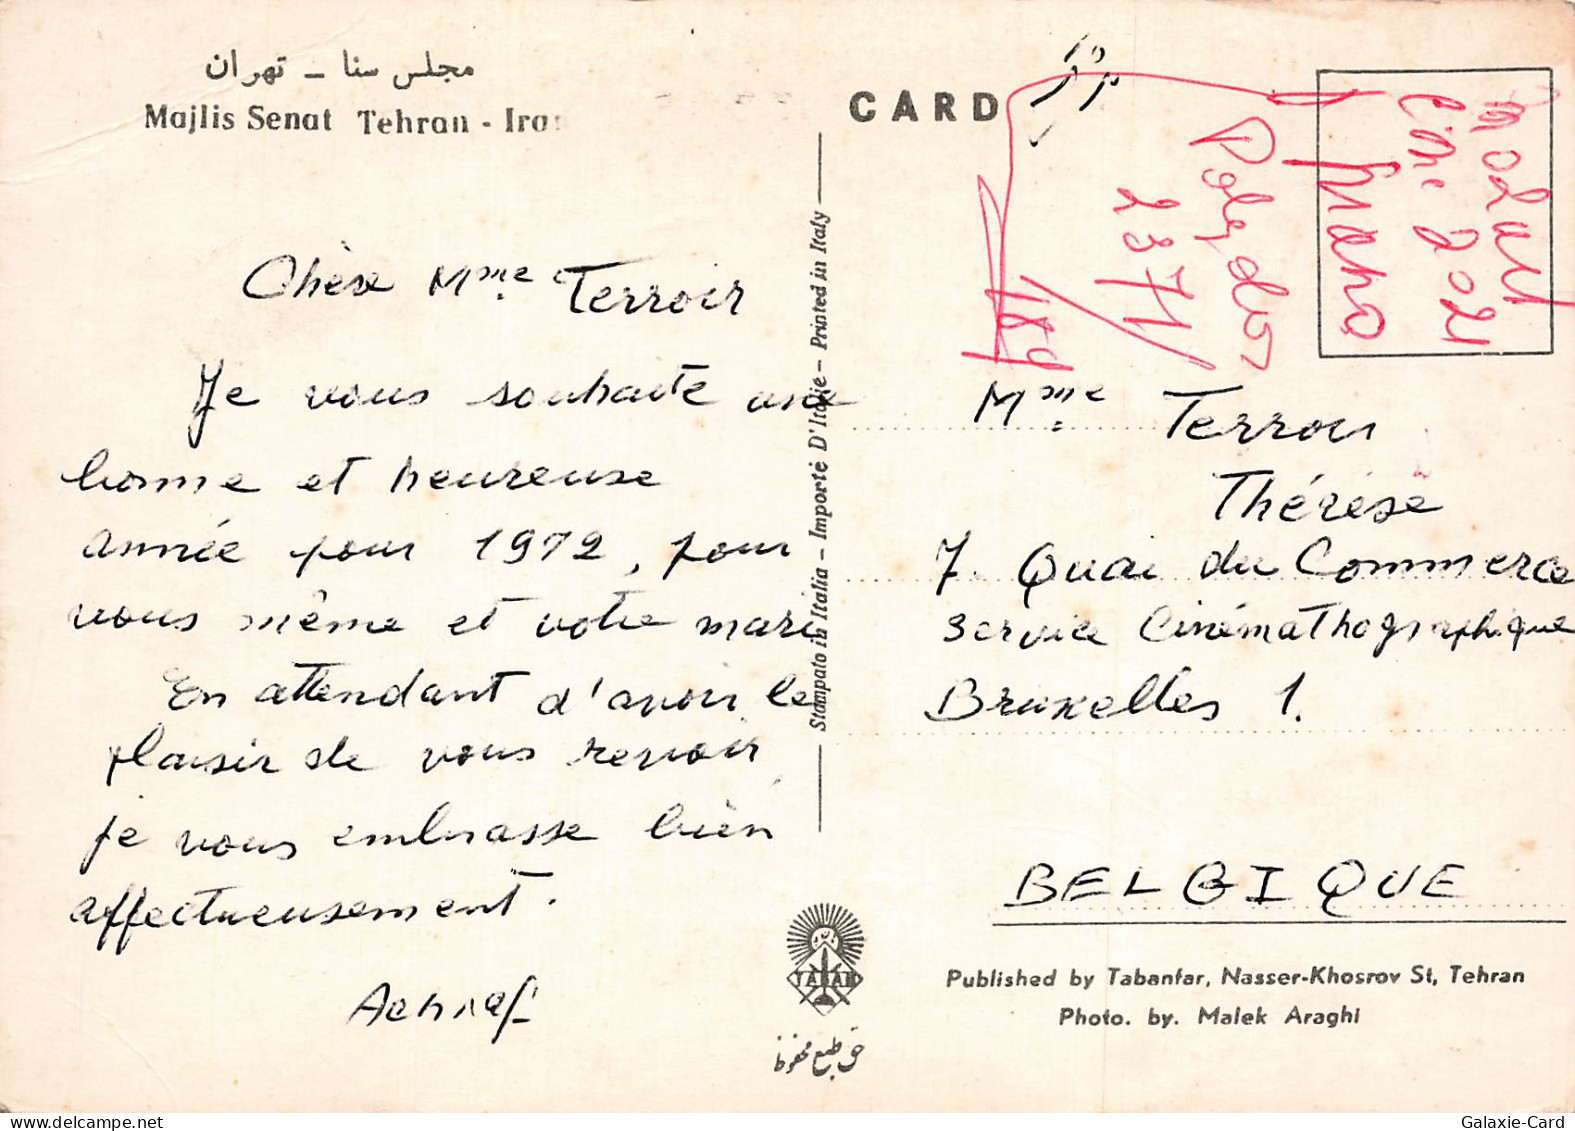 مجلس سنا – تهران
Majlis Senat Tehran - Iran
CARD
Chère Mme Terroir
Je vous souhaite une
bonne et heureuse
année pour 1972, pour
vous même et votre mari
En attendant d'avoir le
plaisir de vous revoir,
je vous embrasse bien
affectueusement.
Stampato in Italia – Importé D'Italie – Printed in Italy
Polydor
2371
189
Mme Terroir
Thérèse
7. Quai du Commerce
Service Cinémathographique
Bruxelles 1.
BELGIQUE
TABAN
حق طبع محفوظ
Published by Tabanfar, Nasser-Khosrov St, Tehran
Photo. by. Malek Araghi
Galaxie-Card